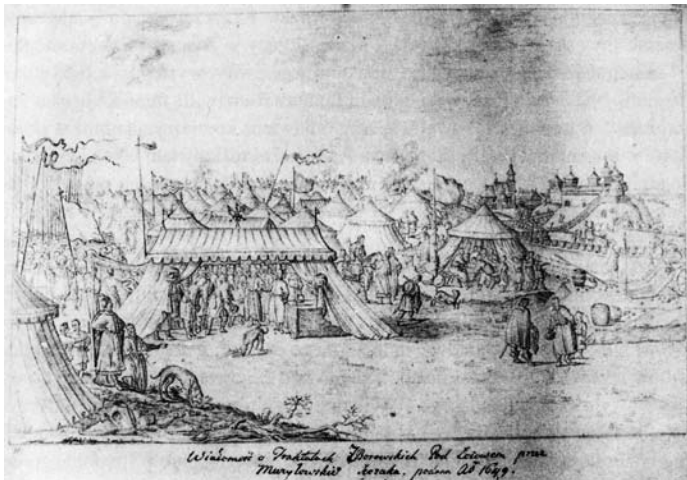 Wiadomość o Traktatach Zborowskich Pod Zolowem przez
Muryłowskie Kozaka, podana A0 1649.